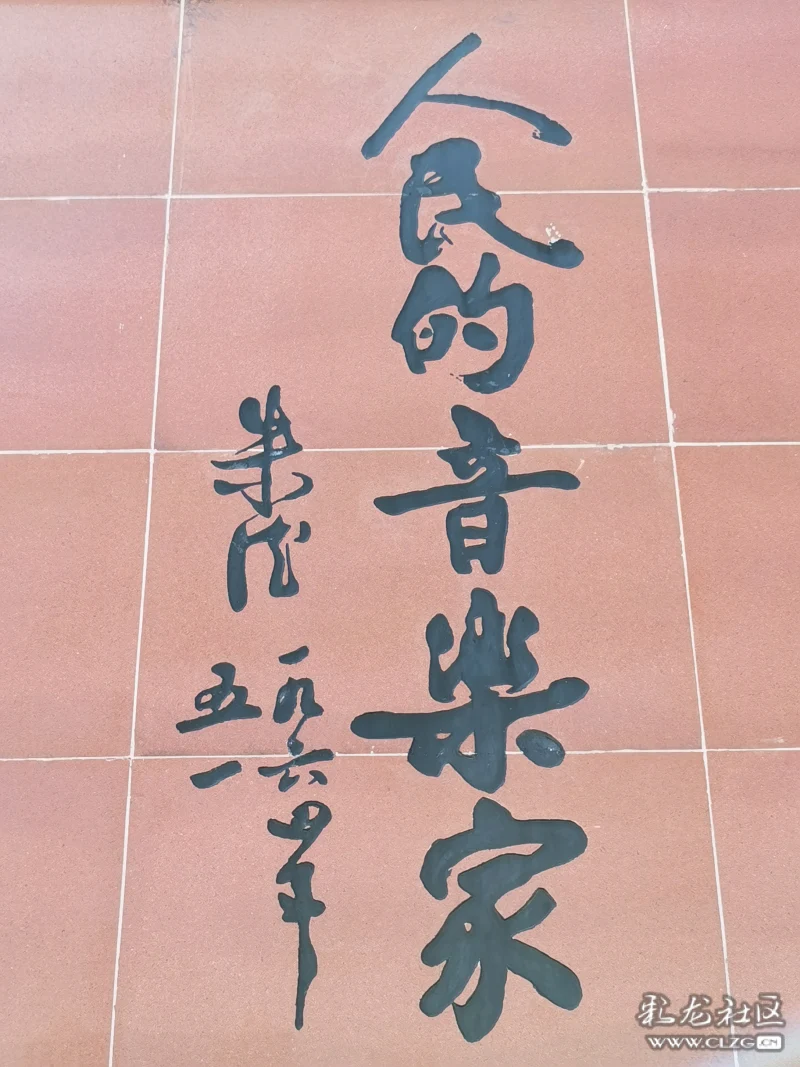 人民的音樂家
朱德
一九六四年
五一
彩龙社区
WWW.CLZG.CN